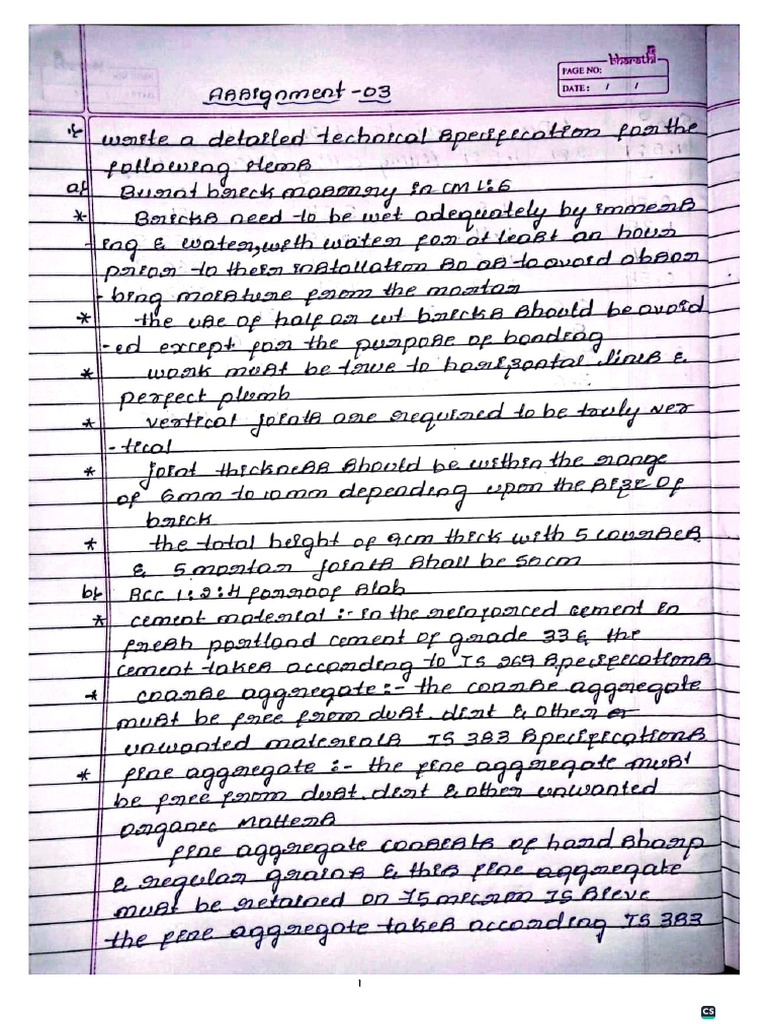 bharathi
PAGE NO:
DATE: / /
Assignment -03
1. Write a detailed technical specification for the
following items
a) Burnt brick masonry in CM 1:6
* Bricks need to be wet adequately by immers
-ing & water, with water for at least an hour
prior to their installation so as to avoid absor
-bing moisture from the mortar
* the use of half or cut bricks should be avoid
-ed except for the purpose of bonding
* work must be true to horizontal lines &
perfect plumb
* vertical joints are required to be truly ver
-tical
* joint thickness should be within the range
of 6mm to 10mm depending upon the size of
brick
* the total height of 9cm thick with 5 courses
& 5 mortar joints shall be 50cm
b) RCC 1:2:4 for roof slab
* cement material :- in the reinforced cement in
fresh portland cement of grade 33 & the
cement takes according to IS 269 specifications
* coarse aggregate :- the coarse aggregate
must be free from dust. dirt & other
unwanted materials IS 383 specifications
* fine aggregate :- the fine aggregate must
be free from dust. dirt & other unwanted
organic matters
fine aggregate consists of hard sharp
& regular grains & this fine aggregate
must be retained on 75 micron IS sieve
the fine aggregate takes according IS 383
1
CS